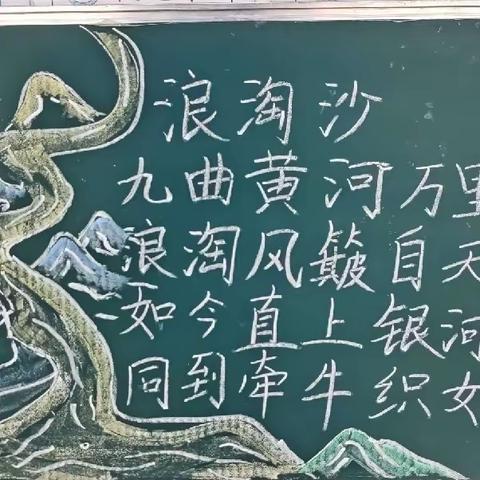 浪淘沙
九曲黄河万里
浪淘风簸自天
如今直上银河
同到牵牛织女